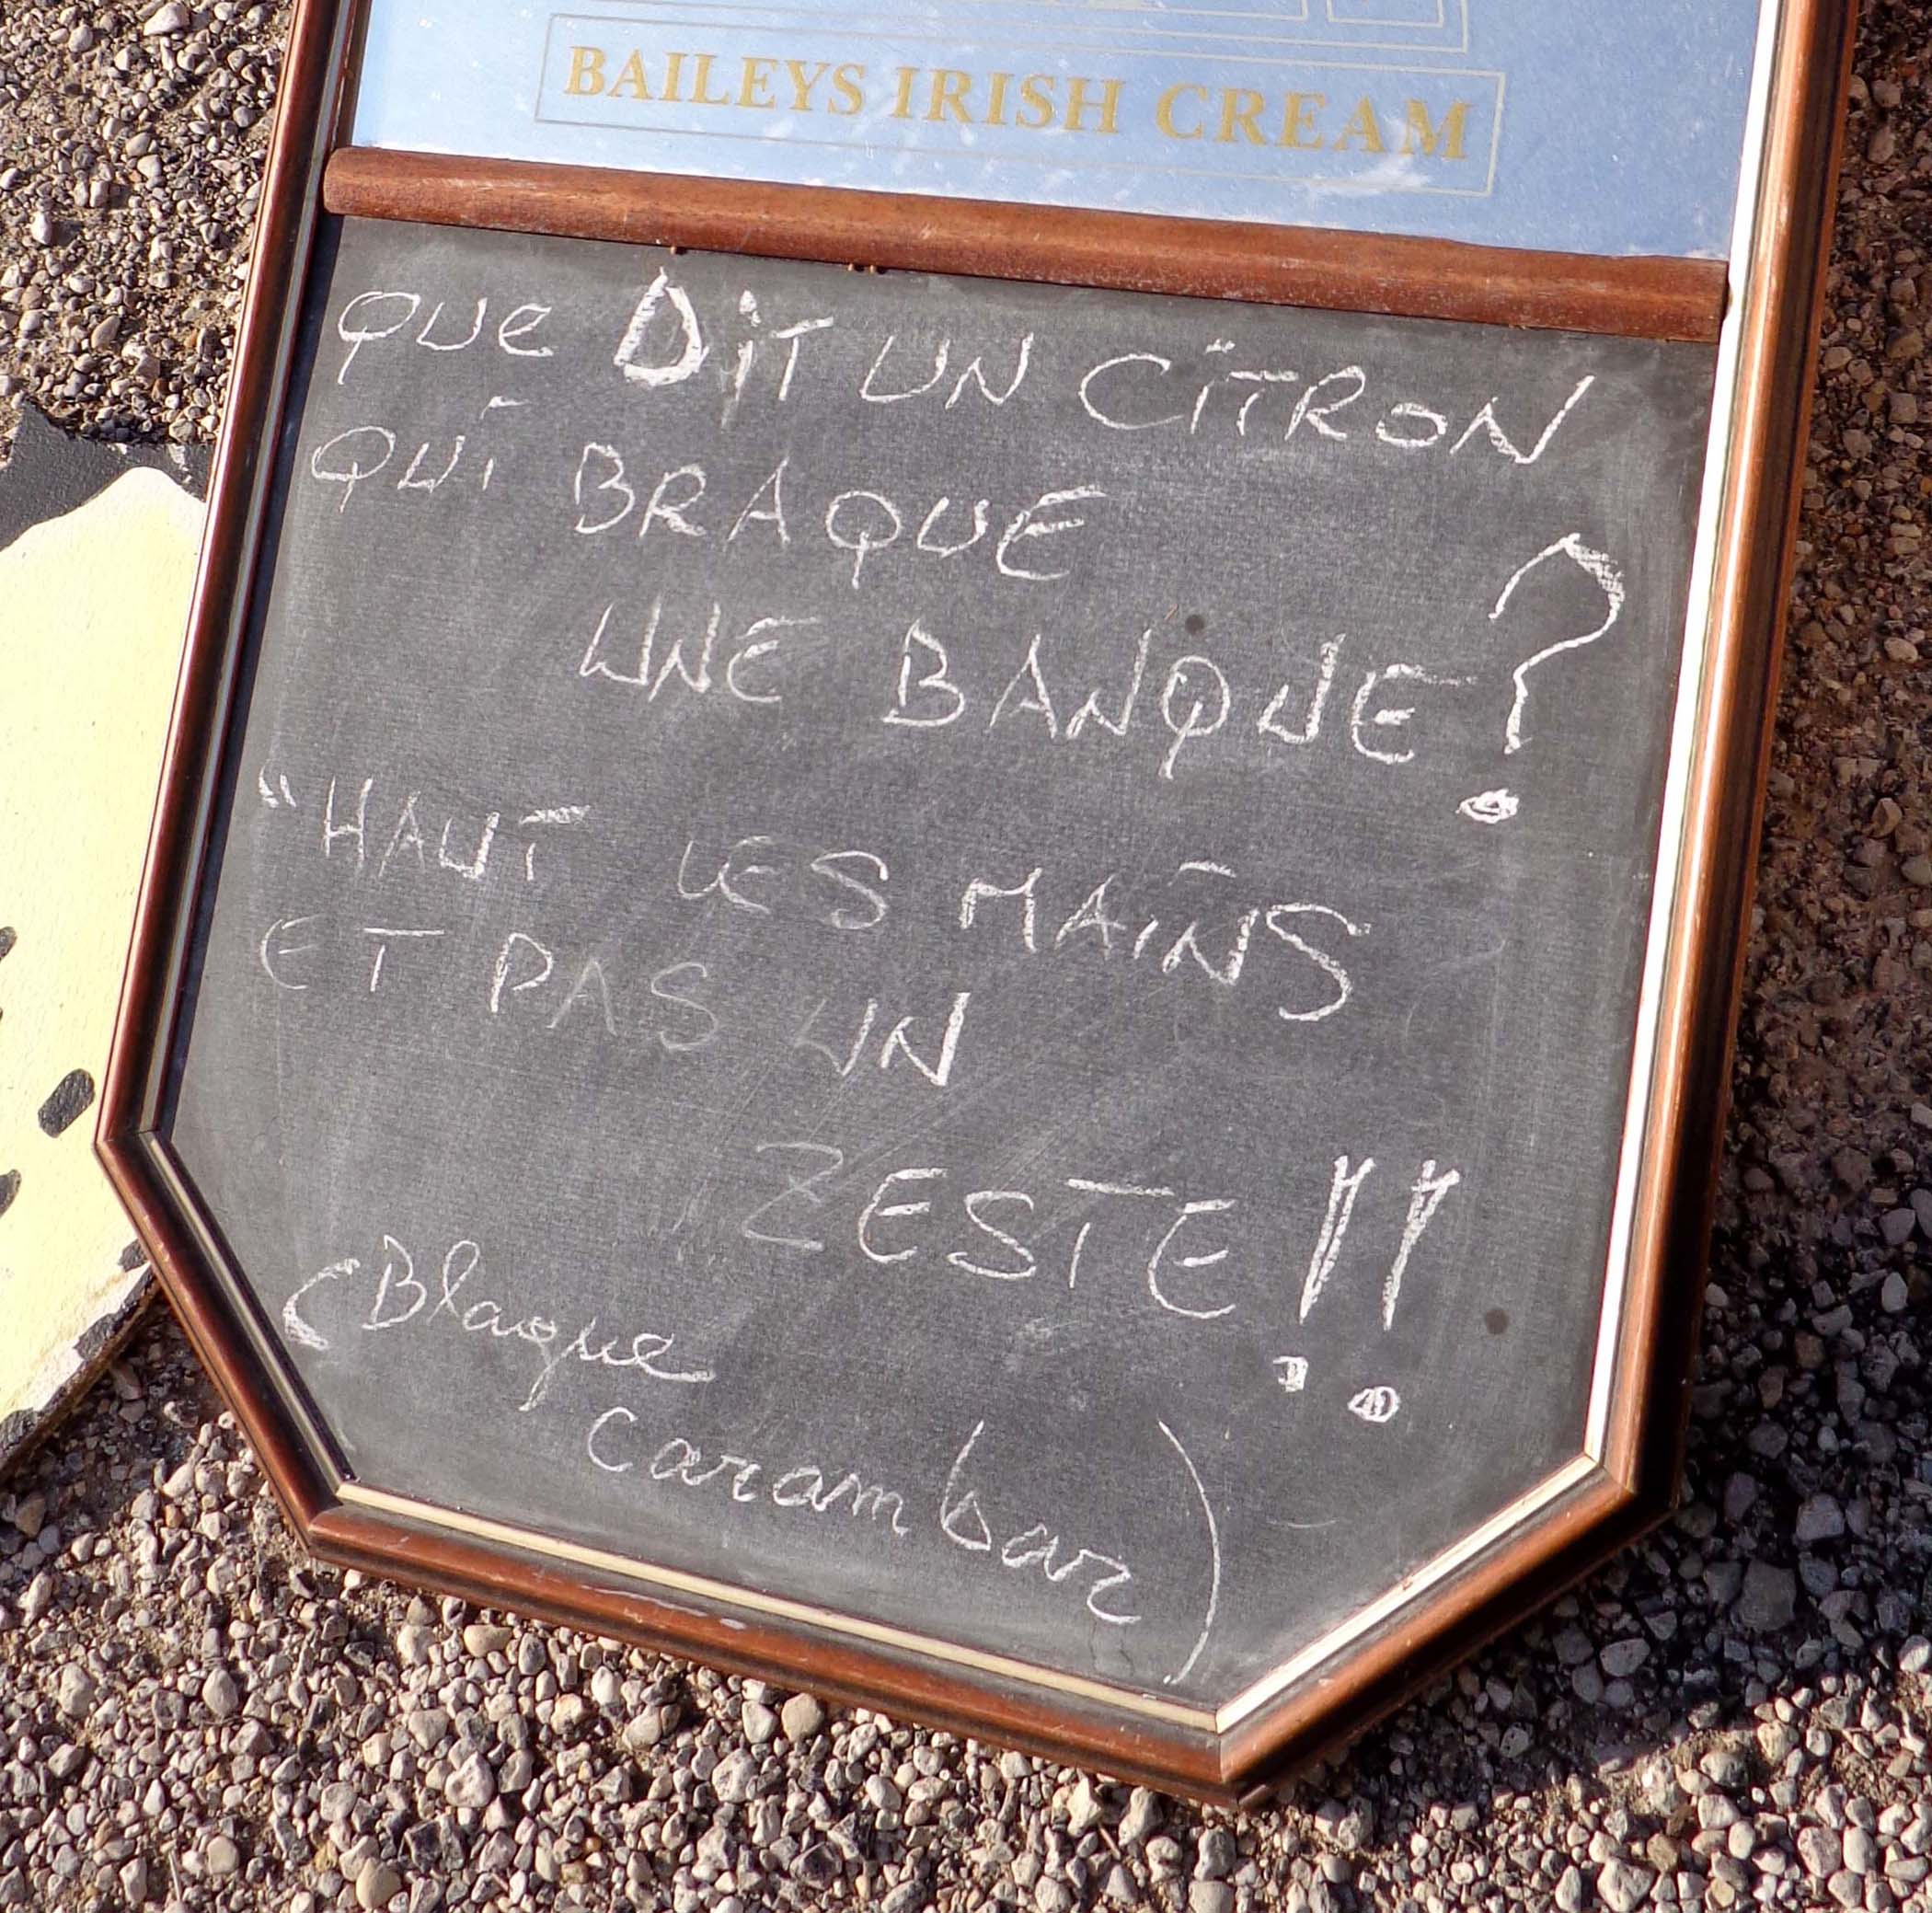 BAILEYS IRISH CREAM
QUE DIT UN CITRON
QUI BRAQUE
UNE BANQUE ?
"HAUT LES MAINS
ET PAS UN
ZESTE !!
(Blaque
Carambar)